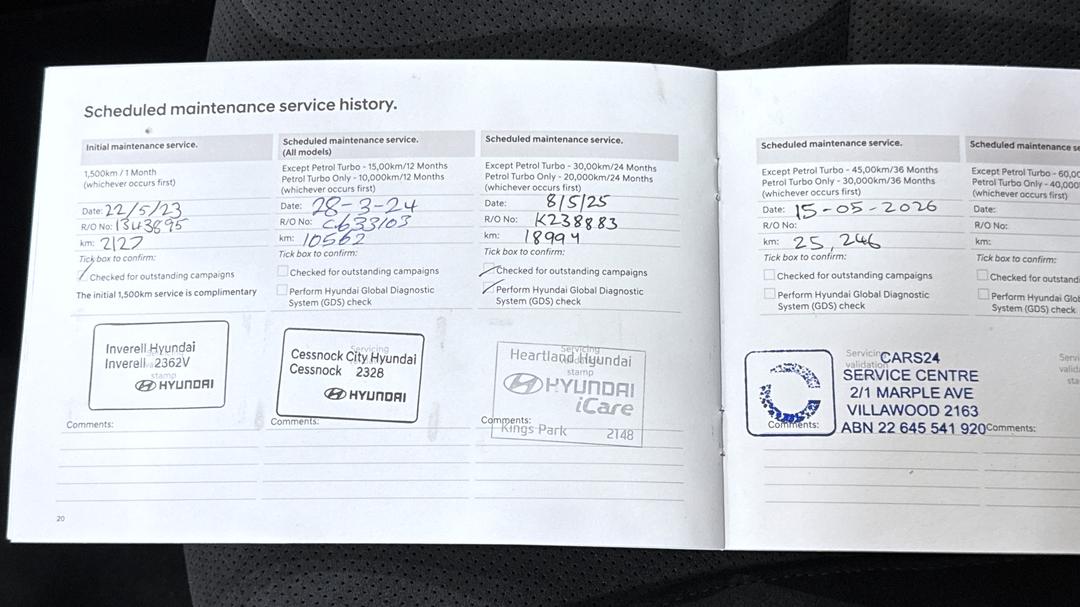 Scheduled maintenance service history.
Initial maintenance service.
1,500km / 1 Month
(whichever occurs first)
Date: 22/5/23
R/O No: 1343895
km: 2127
Tick box to confirm:
Checked for outstanding campaigns
The initial 1,500km service is complimentary
Inverell Hyundai
Inverell 2362V
stamp
HYUNDAI
Comments:
20
Scheduled maintenance service.
(All models)
Except Petrol Turbo - 15,00km/12 Months
Petrol Turbo Only - 10,000km/12 Months
(whichever occurs first)
Date: 28-3-24
R/O No: C633103
km: 10562
Tick box to confirm:
Checked for outstanding campaigns
Perform Hyundai Global Diagnostic
System (GDS) check
Servicing
Cessnock City Hyundai
Cessnock 2328
HYUNDAI
Comments:
Scheduled maintenance service.
Except Petrol Turbo - 30,00km/24 Months
Petrol Turbo Only - 20,000km/24 Months
(whichever occurs first)
Date: 8/5/25
R/O No: K238883
km: 18994
Tick box to confirm:
Checked for outstanding campaigns
Perform Hyundai Global Diagnostic
System (GDS) check
Servicing
Heartland Hyundai
stamp
HYUNDAI
iCare
Comments:
Kings Park 2148
Scheduled maintenance service.
Except Petrol Turbo - 45,00km/36 Months
Petrol Turbo Only - 30,000km/36 Months
(whichever occurs first)
Date: 15-05-2026
R/O No:
km: 25,246
Tick box to confirm:
Checked for outstanding campaigns
Perform Hyundai Global Diagnostic
System (GDS) check
Servicing
validation
CARS24
SERVICE CENTRE
2/1 MARPLE AVE
VILLAWOOD 2163
ABN 22 645 541 920
Comments:
Scheduled maintenance se
Except Petrol Turbo - 60,00
Petrol Turbo Only - 40,000
(whichever occurs first)
Date:
R/O No:
km:
Tick box to confirm:
Checked for outstandi
Perform Hyundai Glob
System (GDS) check
Servi
valida
sta
Comments: